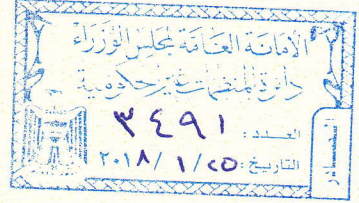 الأمانة العامة لمجلس الوزراء
دائرة المنظمات غير حكومية
العـدد : ٣٤٩١
التاريخ : ٢٥ / ١ / ٢٠١٨